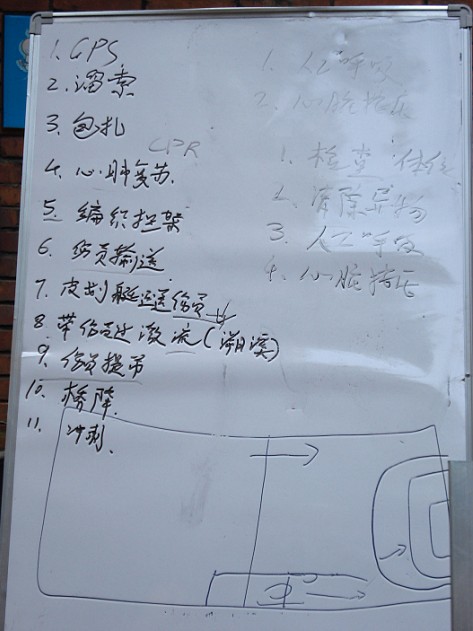 1. GPS
2. 溜索
3. 包扎
CPR
4. 心肺复苏
5. 编织担架
6. 伤员输送
7. 皮划艇运送伤员
8. 带伤员过激流(溯溪)
9. 伤员提吊
10. 桥降
11. 冲刺
1. 人工呼吸
2. 心脏挤压
1. 检查 体位
2. 清除异物
3. 人工呼吸
4. 心脏挤压